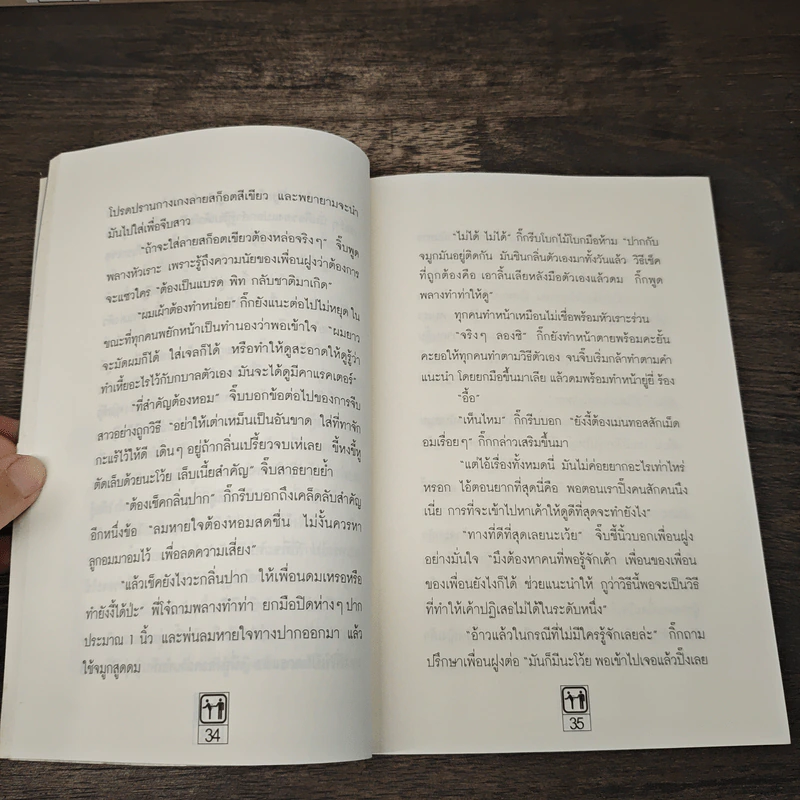 โปรดปรานกางเกงลายสก็อตสีเขียว และพยายามจะนำ
มันไปใส่เพื่อจีบสาว
"ถ้าจะใส่ลายสก็อตเขียวต้องหล่อจริงๆ" จิ๊บพูด
พลางหัวเราะ เพราะรู้ถึงความนัยของเพื่อนฝูงว่าต้องการ
จะแซวใคร "ต้องเป็นแบรด พิท กลับชาติมาเกิด"
"ผมเผ้าต้องทำหน่อย" กิ๊กยังแนะต่อไปไม่หยุด ใน
ขณะที่ทุกคนพยักหน้าเป็นทำนองว่าพอเข้าใจ "ผมยาว
จะมัดผมก็ได้ ใส่เจลก็ได้ หรือทำให้ดูสะอาดให้ดูรู้ว่า
ทำเหี้ยอะไรไว้กับกบาลตัวเอง มันจะได้ดูมีคาแรคเตอร์"
"ที่สำคัญต้องหอม" จิ๊บบอกข้อต่อไปของการจีบ
สาวอย่างถูกวิธี "อย่าให้เต่าเหม็นเป็นอันขาด ใส่ที่ทาจัก
กะแร้ไว้ให้ดี เดินๆ อยู่ถ้ากลิ่นเปรี้ยวจบเห่เลย ขี้หงขี้หู
ตัดเล็บด้วยนะโว้ย เล็บเนี้ยสำคัญ" จิ๊บสาธยายย้ำ
"ต้องเช็คกลิ่นปาก" กิ๊กรีบบอกถึงเคล็ดลับสำคัญ
อีกหนึ่งข้อ "ลมหายใจต้องหอมสดชื่น ไม่งั้นควรหา
ลูกอมมาอมไว้ เพื่อลดความเสี่ยง"
"แล้วเช็คยังไงวะกลิ่นปาก ให้เพื่อนดมเหรอหรือ
ทำยังงี้ได้ป่ะ" พี่โจ๋ถามพลางทำท่า ยกมือปิดห่างๆ ปาก
ประมาณ 1 นิ้ว และพ่นลมหายใจทางปากออกมา แล้ว
ใช้จมูกสูดดม
34
"ไม่ได้ ไม่ได้" กิ๊กรีบโบกไม้โบกมือห้าม "ปากกับ
จมูกมันอยู่ติดกัน มันชินกลิ่นตัวเองมาทั้งวันแล้ว วิธีเช็ค
ที่ถูกต้องคือ เอาลิ้นเลียหลังมือตัวเองแล้วดม กิ๊กพูด
พลางทำท่าให้ดู"
ทุกคนทำหน้าเหมือนไม่เชื่อพร้อมหัวเราะร่วน
"จริงๆ ลองซิ" กิ๊กยังทำหน้าตายพร้อมคะยั้น
คะยอให้ทุกคนทำตามวิธีตัวเอง จนจิ๊บเริ่มกล้าทำตามคำ
แนะนำ โดยยกมือขึ้นมาเลีย แล้วดมพร้อมทำหน้ายู่ยี่ ร้อง
"อื้อ"
"เห็นไหม" กิ๊กรีบบอก "ยังงี้ต้องเมนทอสสักเม็ด
อมเรื่อยๆ" กิ๊กกล่าวเสริมขึ้นมา
"แต่ไอ้เรื่องทั้งหมดนี่ มันไม่ค่อยยากอะไรเท่าไหร่
หรอก ไอ้ตอนยากที่สุดนี่คือ พอตอนเราปิ๊งคนสักคนนึง
เนี่ย การที่จะเข้าไปหาเค้าให้ดูดีที่สุดจะทำยังไง"
"ทางที่ดีที่สุดเลยนะเว้ย" จิ๊บชี้นิ้วบอกเพื่อนฝูง
อย่างมั่นใจ "มึงต้องหาคนที่พอรู้จักเค้า เพื่อนของเพื่อน
ของเพื่อนยังไงก็ได้ ช่วยแนะนำให้ กูว่าวิธีนี้พอจะเป็นวิธี
ที่ทำให้เค้าปฏิเสธไม่ได้ในระดับหนึ่ง"
"อ้าวแล้วในกรณีที่ไม่มีใครรู้จักเลยล่ะ" กิ๊กถาม
ปรึกษาเพื่อนฝูงต่อ "มันก็มีนะโว้ย พอเข้าไปเจอแล้วปิ๊งเลย
35